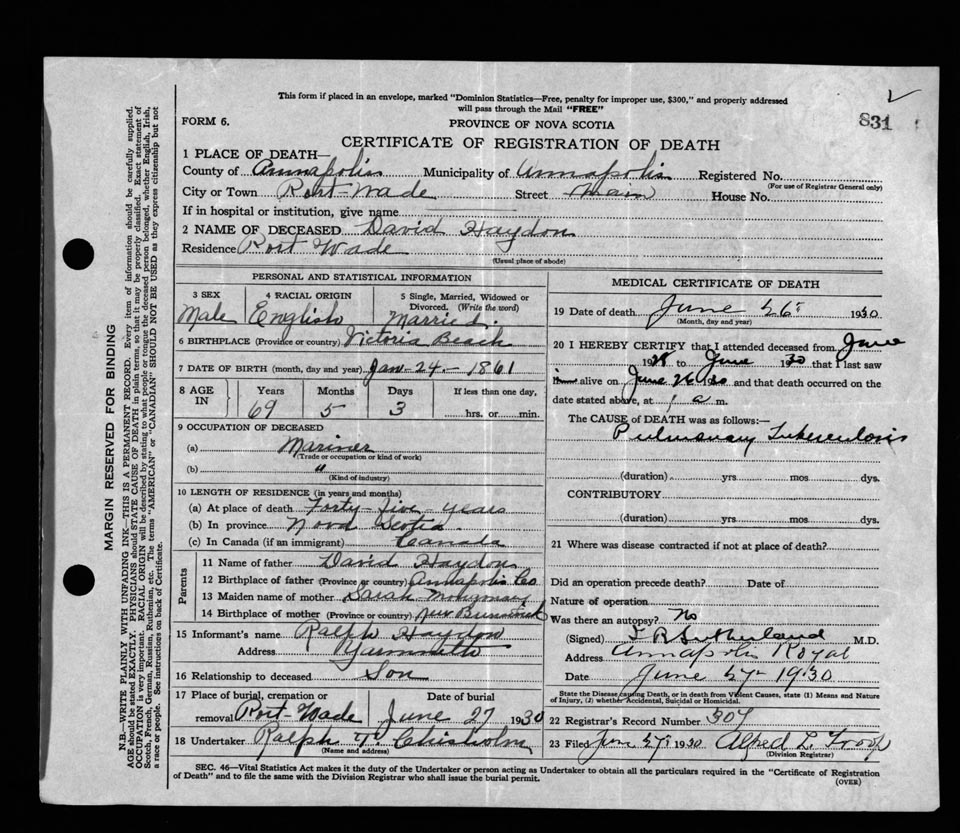 This form if placed in an envelope, marked "Dominion Statistics—Free, penalty for improper use, $300," and properly addressed
will pass through the Mail "FREE"
831
FORM 6.
PROVINCE OF NOVA SCOTIA
CERTIFICATE OF REGISTRATION OF DEATH
1 PLACE OF DEATH—
County of Annapolis Municipality of Annapolis Registered No.
(For use of Registrar General only)
City or Town Port Wade Street Main House No.
If in hospital or institution, give name
2 NAME OF DECEASED David Haydon
Residence Port Wade
(Usual place of abode)
PERSONAL AND STATISTICAL INFORMATION
3 SEX 4 RACIAL ORIGIN 5 Single, Married, Widowed or
Divorced. (Write the word)
Male English Married.
6 BIRTHPLACE (Province or country) Victoria Beach
7 DATE OF BIRTH (month, day, and year) Jan - 24 - 1861
8 AGE IN Years Months Days If less than one day,
69 5 3 hrs. or min.
9 OCCUPATION OF DECEASED
(a) Mariner
(Trade or occupation or kind of work)
(b) "
(Kind of industry)
10 LENGTH OF RESIDENCE (in years and months)
(a) At place of death Forty-five - years
(b) In province Nova Scotia
(c) In Canada (if an immigrant) Canada
Parents
11 Name of father David Haydon
12 Birthplace of father (Province or country) Annapolis Co
13 Maiden name of mother Sarah
14 Birthplace of mother (Province or country) New Brunswick
15 Informant's name Ralph Haydon
Address Yarmouth
16 Relationship to deceased Son
17 Place of burial, cremation or Date of burial
removal Port-Wade June 27 1930
18 Undertaker Ralph Chisholm
(Name and address)
MEDICAL CERTIFICATE OF DEATH
19 Date of death June 26 1930
(Month, day and year)
20 I HEREBY CERTIFY that I attended deceased from June
1928 to June 1930 that I last saw
alive on June 26 30 and that death occurred on the
date stated above, at 1 a m.
The CAUSE of DEATH was as follows:—
Pulmonary Tuberculosis
(duration) yrs mos dys.
CONTRIBUTORY
(duration) yrs mos dys.
21 Where was disease contracted if not at place of death?
Did an operation precede death? Date of
Nature of operation
Was there an autopsy? No
(Signed) Sutherland M.D.
Address Annapolis Royal
Date June 27 1930
State the Disease causing Death, or in death from Violent Causes, state (1) Means and Nature
of Injury, (2) whether Accidental, Suicidal or Homicidal.
22 Registrar's Record Number 307
23 Filed June 27 1930 Alfred L.
(Division Registrar)
SEC. 46—Vital Statistics Act makes it the duty of the Undertaker or person acting as Undertaker to obtain all the particulars required in the "Certificate of Registration
of Death" and to file the same with the Division Registrar who shall issue the burial permit.
(OVER)
MARGIN RESERVED FOR BINDING
N.B.—WRITE PLAINLY WITH UNFADING INK—THIS IS A PERMANENT RECORD. Every item of information should be carefully supplied.
AGE should be stated EXACTLY. PHYSICIANS should STATE CAUSE OF DEATH in plain terms, so that it may be properly classified. Exact statement of
OCCUPATION is very important. RACIAL ORIGIN will be described by stating to what people or tongue the deceased person belonged, whether English, Irish,
Scotch, French, German, Russian, Ruthenian, etc. The terms "AMERICAN" or "CANADIAN" SHOULD NOT BE USED as they express citizenship but not
a race or people. See instructions on back of Certificate.